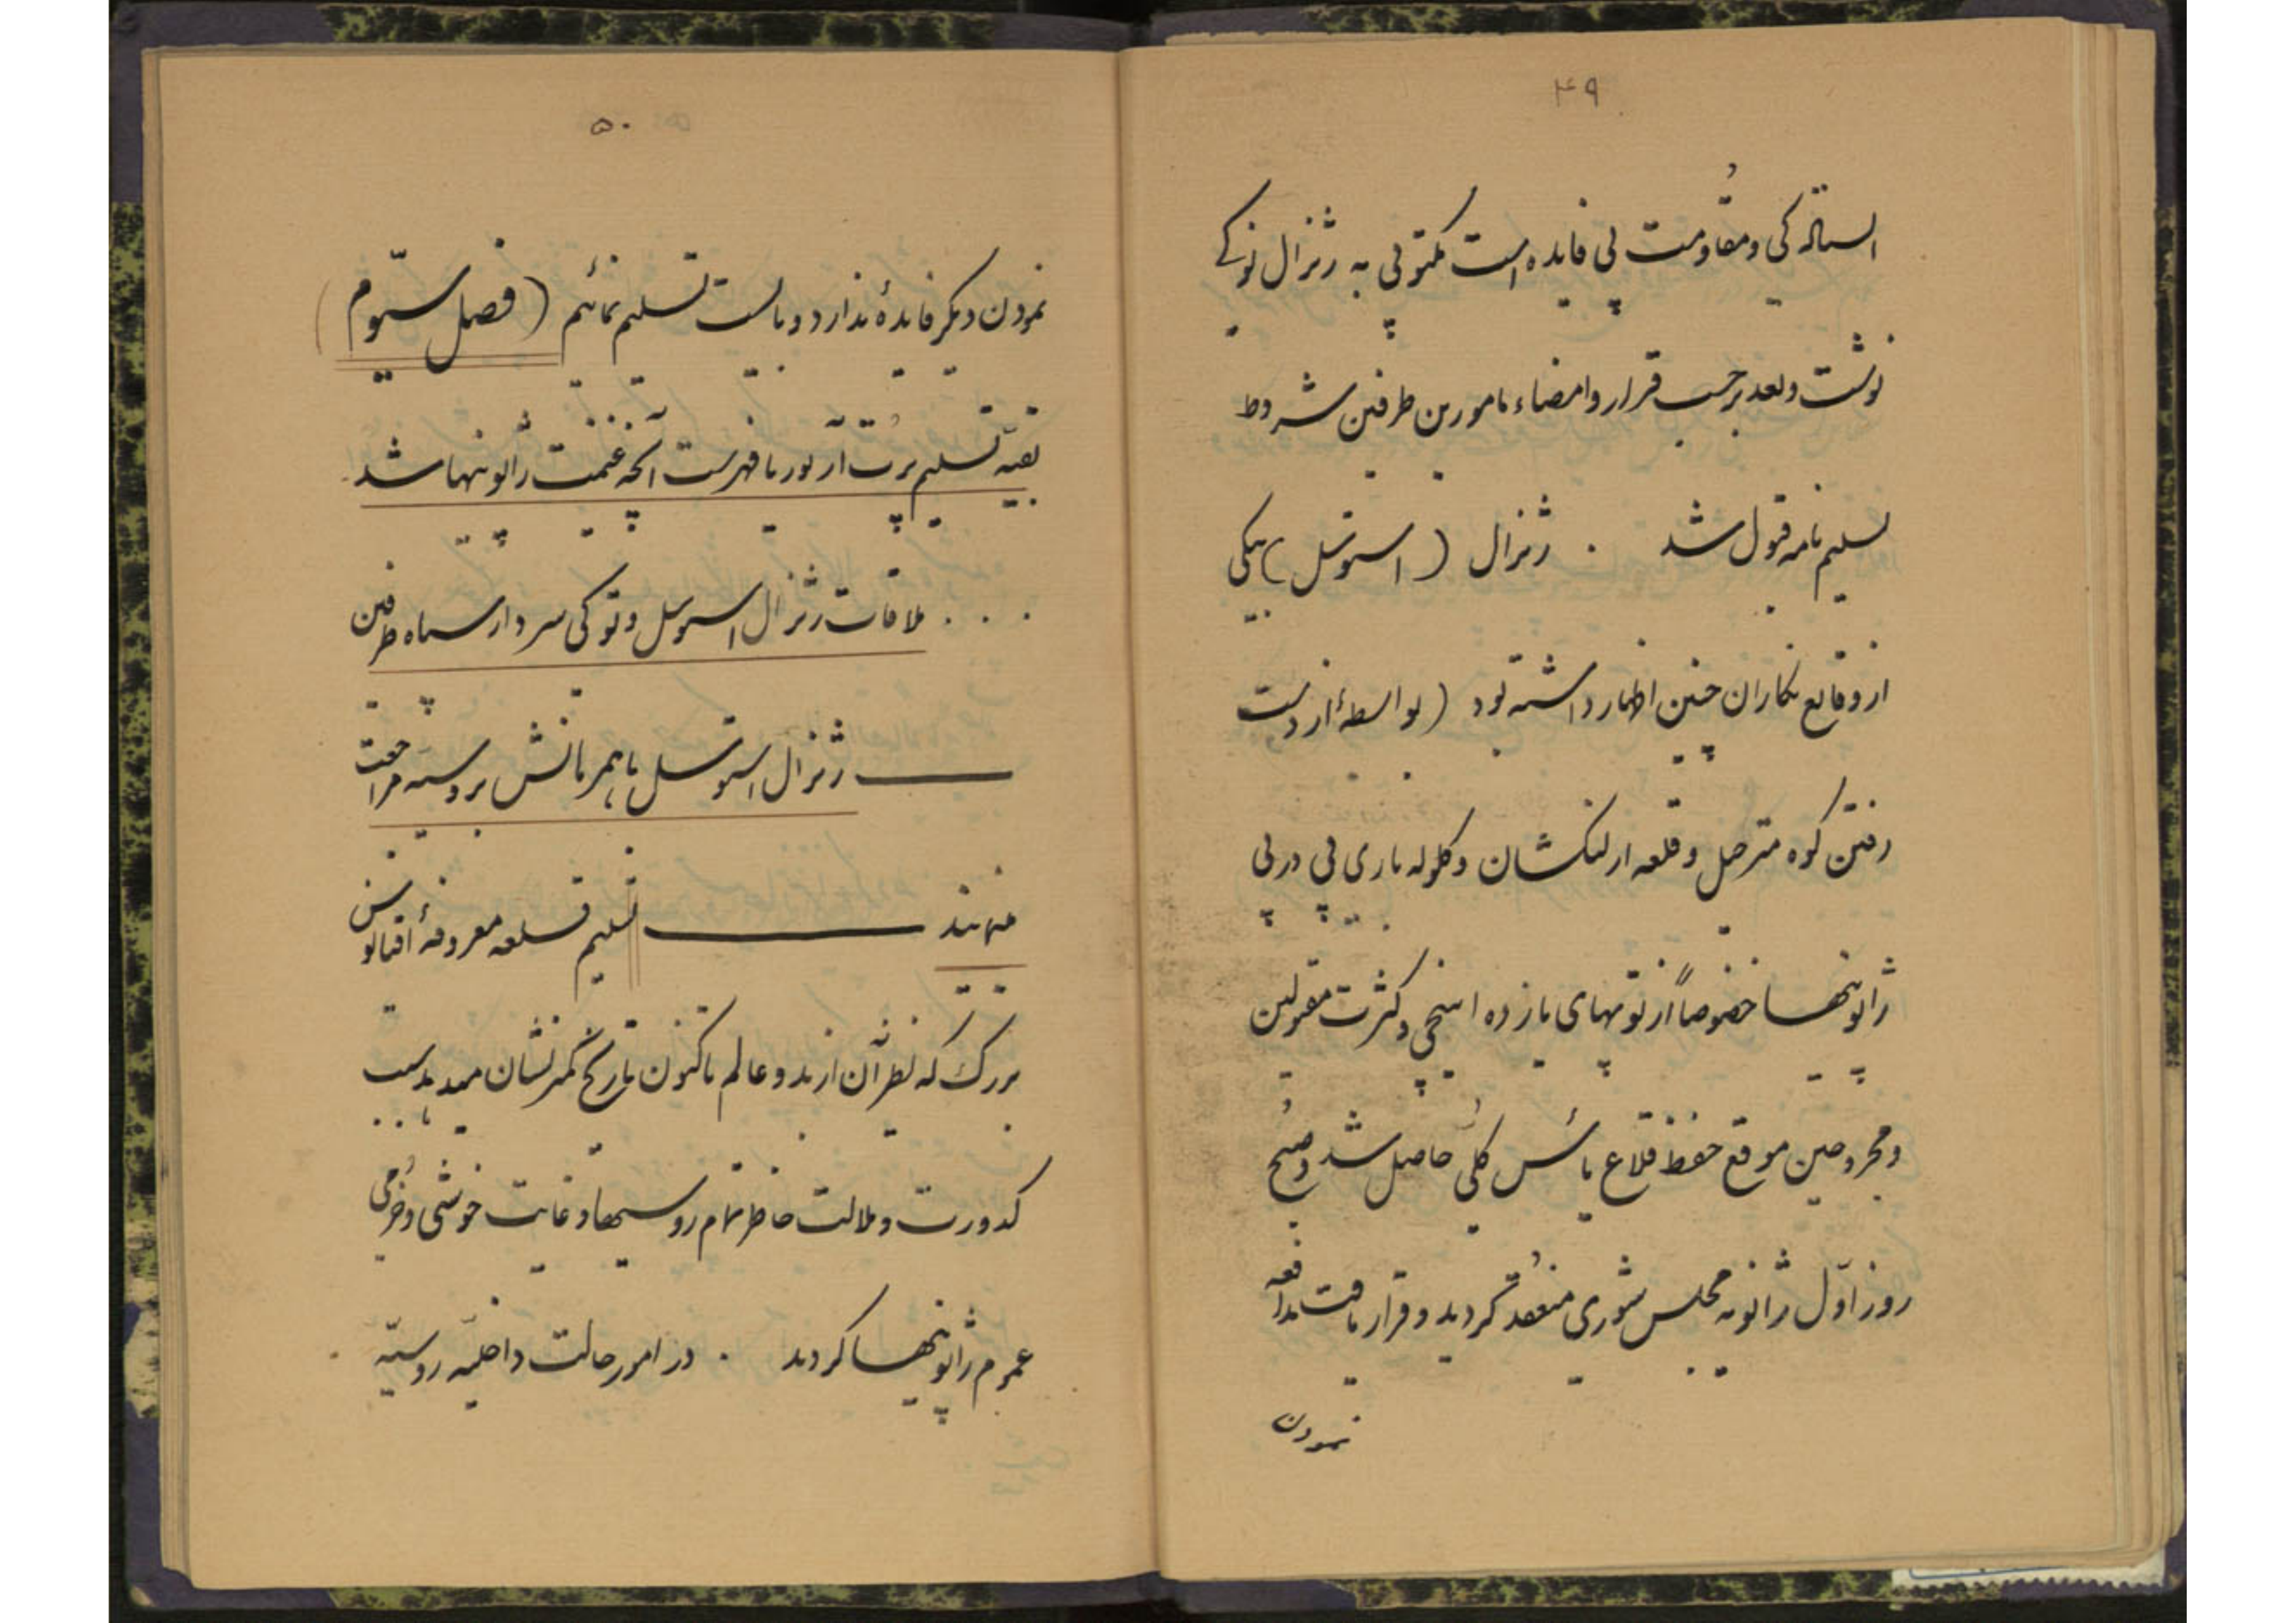 ۴۹
ایستاده‌گی و مقاومت بی فایده است مکتوبی به ژنرال نوگی
نوشت و بعد برحسب قرار و امضاء مامورین طرفین شروط
تسلیم نامه قبول شد . ژنرال (استوسل) بیکی
از وقایع نگاران چنین اظهار داشته بود (بواسطهٔ از دست
رفتن کوه مترصل و قلعه ارلنکشان و کلوله باری پی در پی
ژاپونیها خصوصاً از توپهای یازده اینچی و کثرت مقتولین
و مجروحین موقع حفظ قلاع یأس کلی حاصل شد و صبح
روز اوّل ژانویه مجلس شوری منعقد کردید و قرار یافت مدافعه
نمودن
۵۰
نمودن دیکر فایدهٔ ندارد و بایست تسلیم نمائیم (فصل سیّوم)
بقیه تسلیم پرت آرتور با فهرست آنچه غنیمت ژاپونیها شد
. . . ملاقات ژنرال استوسل و نوکی سردار سپاه طرفین
ژنرال استوسل با همراهانش بروسیه مراجعت
مینمایند تسلیم قلعه معروفهٔ اقیانوس
بزرک که نظیر آن از بدو عالم تاکنون تاریخ کمتر نشان میدهد سبب
کدورت و ملالت خاطر تمام روسیها و غایت خوشی و خرمی
عموم ژاپونیها کردید . در امور حالت داخلیّه روسیّه